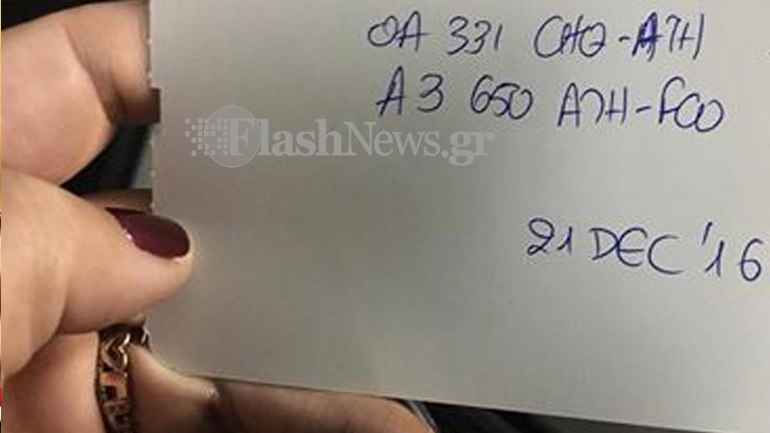 OA 331 CHQ-ATH
A3 650 ATH-FCO
FlashNews.gr
21 DEC '16